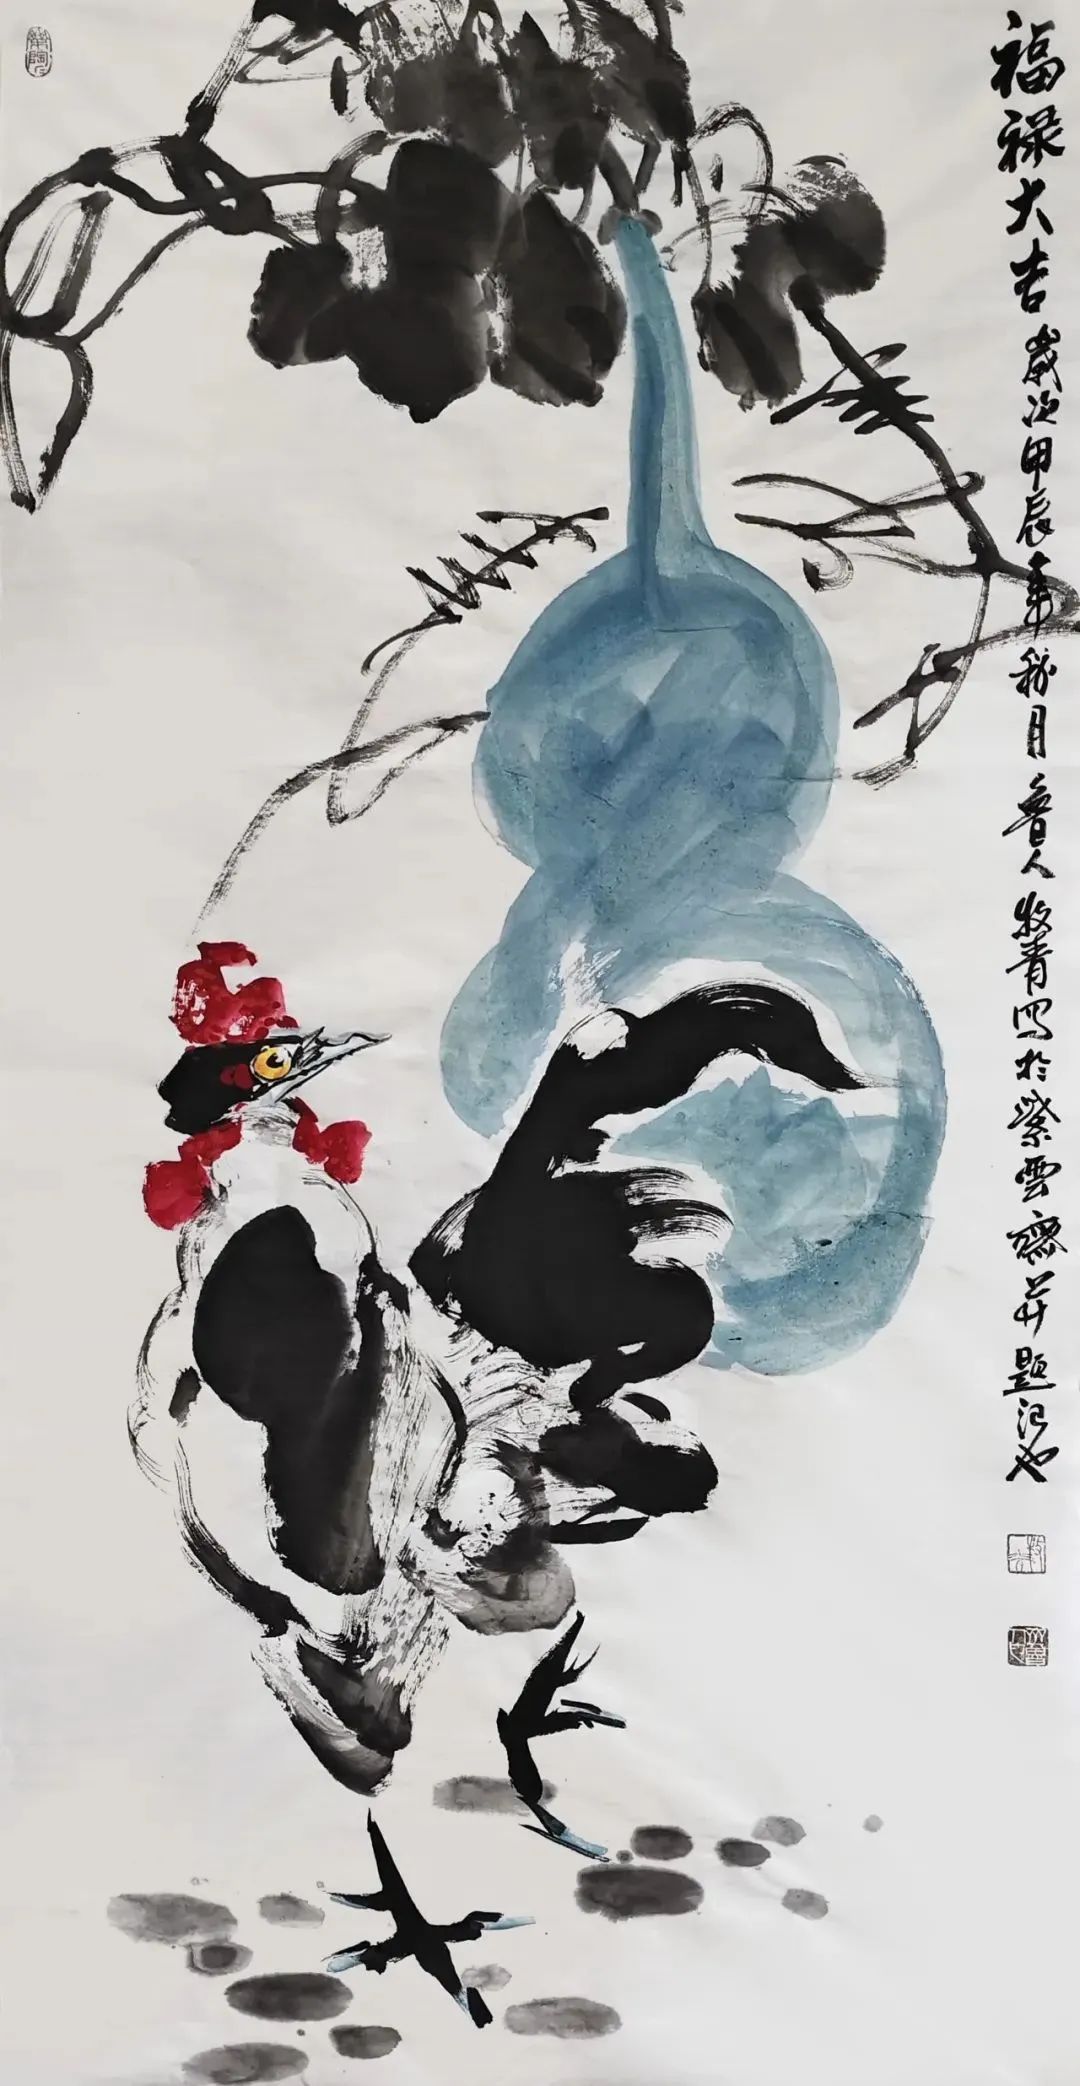 福禄大吉 岁次甲辰年秋月鲁人牧青写于紫云斋并题记也